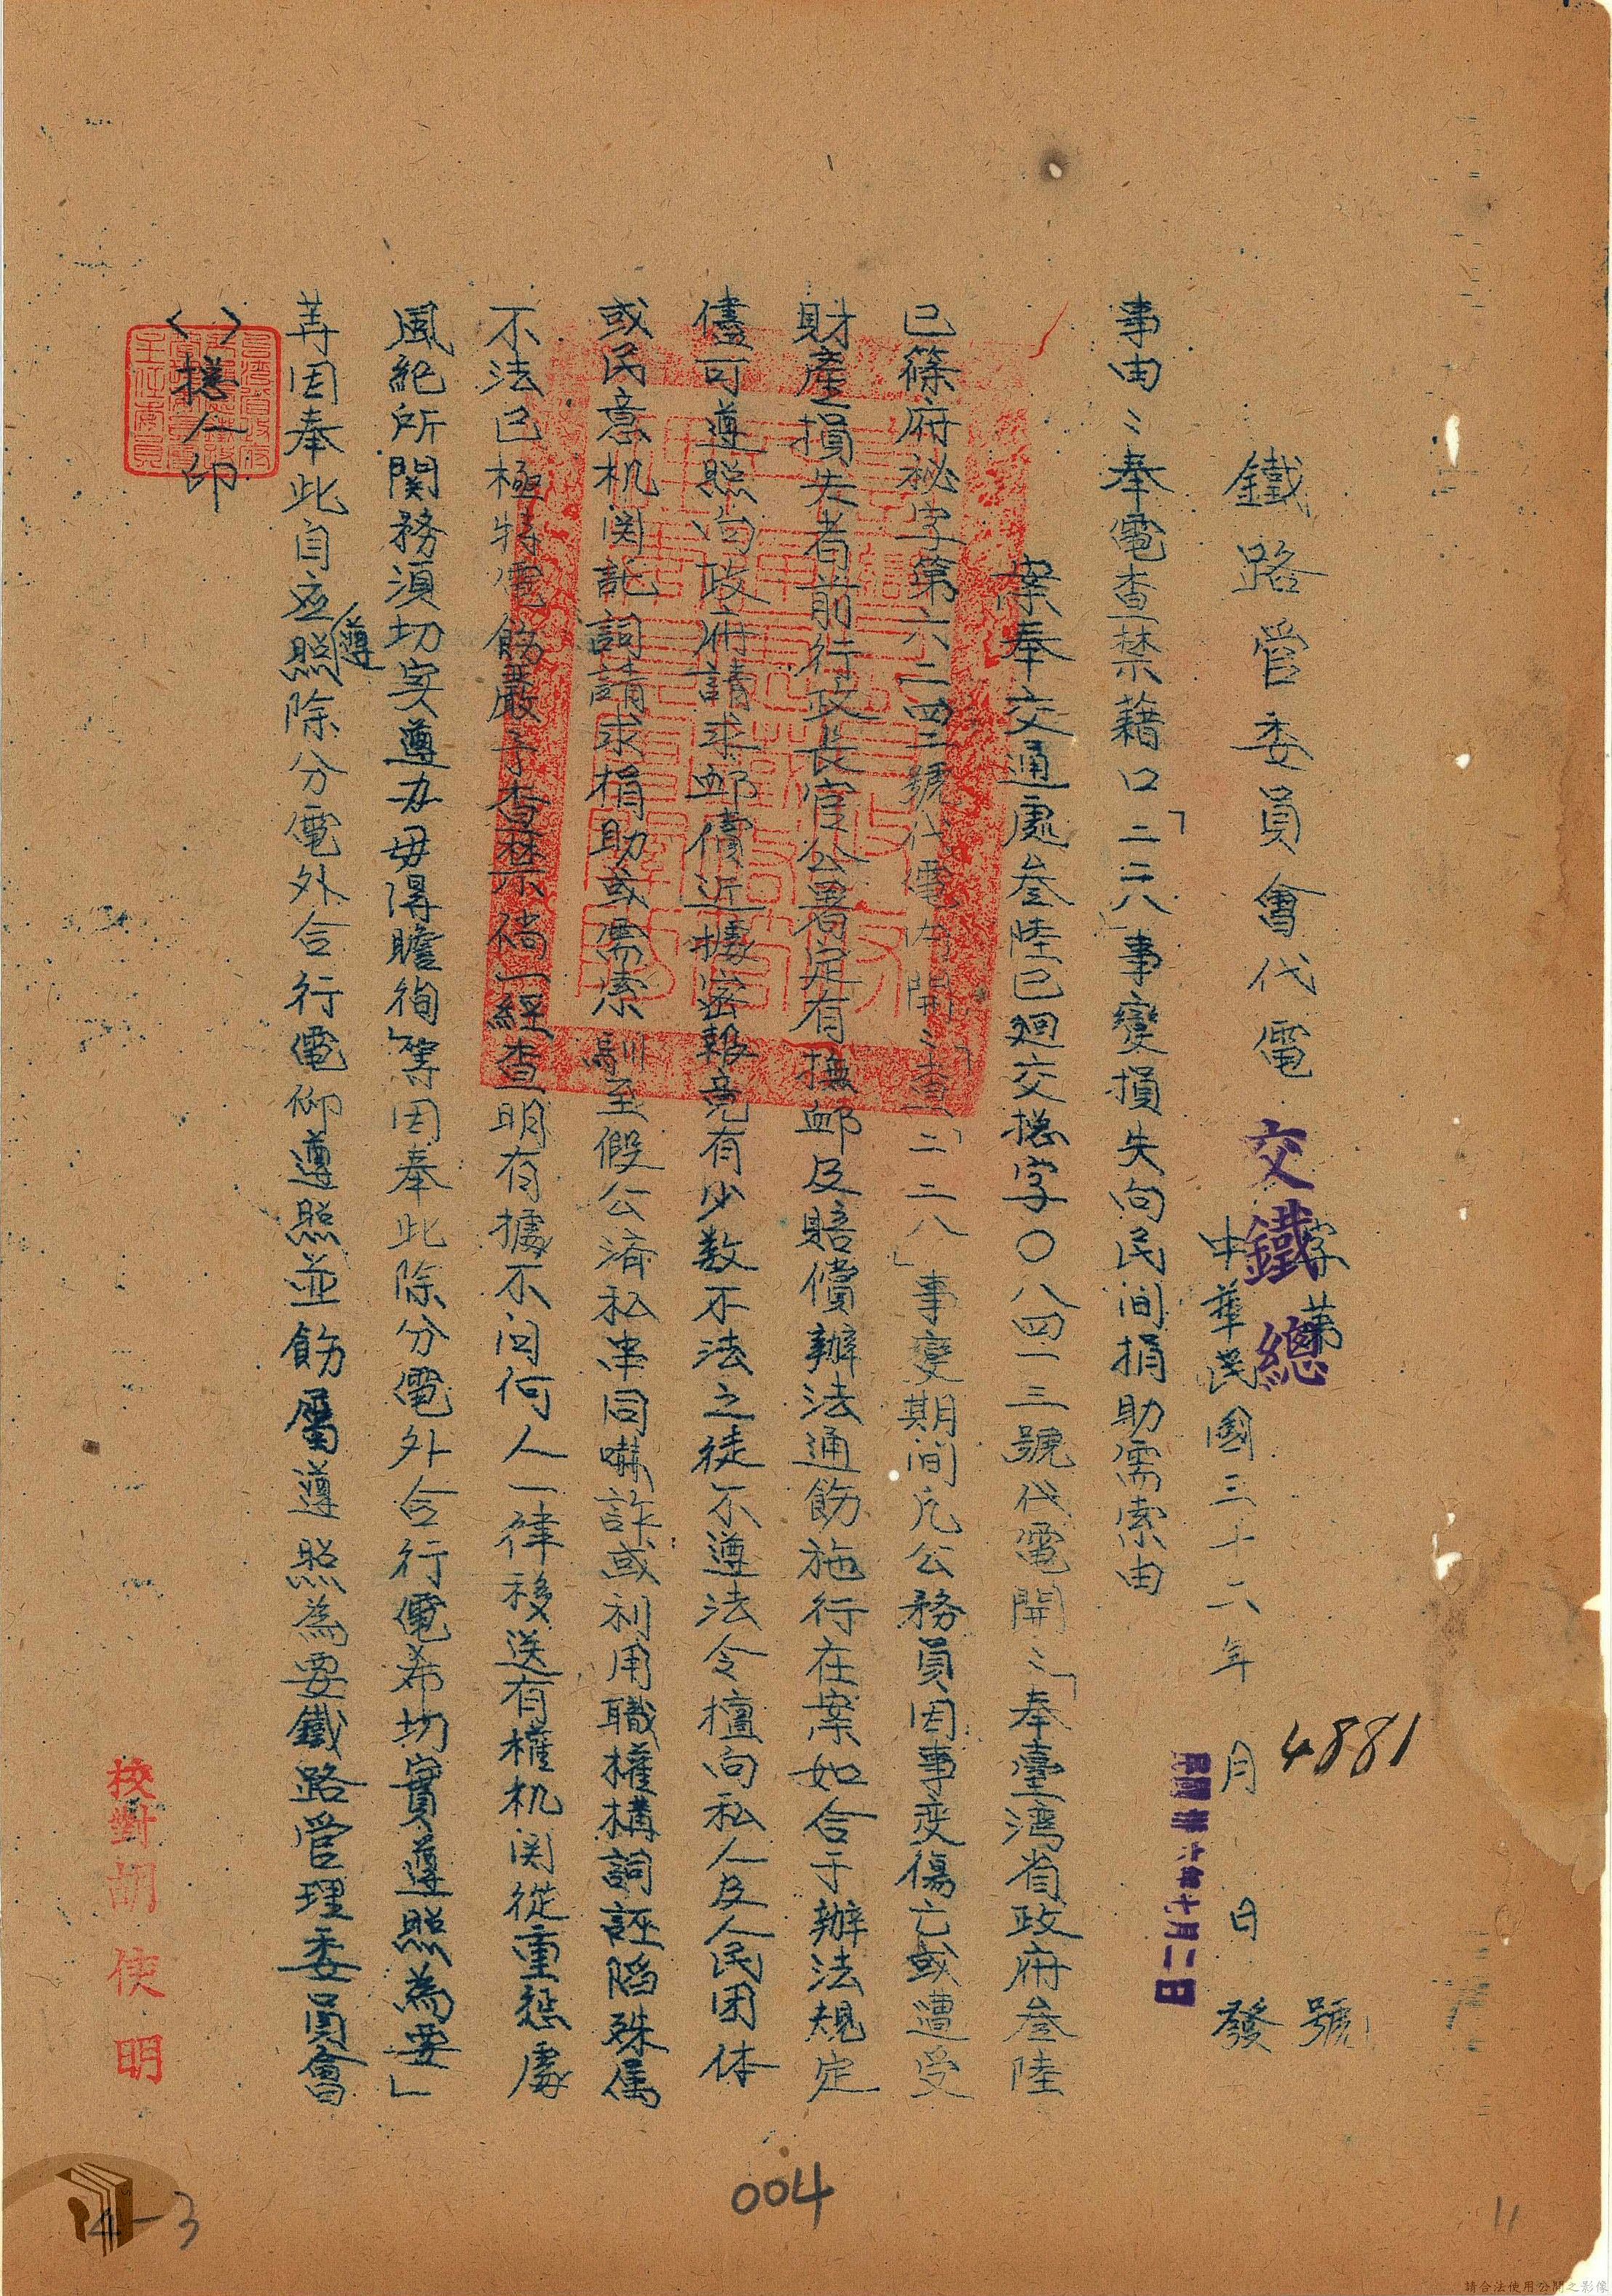 鐵路管委員會代電 交鐵總字第4881號
中華民國三十六年 月 日發
民國卅六年七月二日
事由:奉電查禁藉口「二二八」事變損失向民间捐助需索由
案奉交通處叁陸巳廻交総字〇八四一三號代電開:「奉臺湾省政府叁陸
巳篠府祕字第六二四三號代電内開:「查「二二八」事變期间凡公務員因事变傷亡或遭受
財產損失者前行政長官公署定有撫卹及賠償辦法通飭施行在案如合于辦法規定
儘可遵照向政府請求卹償近據密報竟有少数不法之徒不遵法令擅向私人及人民团体
或民意机関託詞請求捐助或需索馴至假公济私串同嚇詐或利用職權構詞誣陷殊属
不法已極特電飭嚴予查禁倘一經查明有據不问何人一律移送有權机関從重惩處
風紀所関務須切实遵办毋得瞻徇」等因奉此除分電外合行電希切實遵照為要」
等因奉此自应遵照除分電外合行電仰遵照並飭屬遵照為要鐵路管理委員會
〈 〉総人印
校對胡使明
004
4-3
11
請合法使用公開之影像